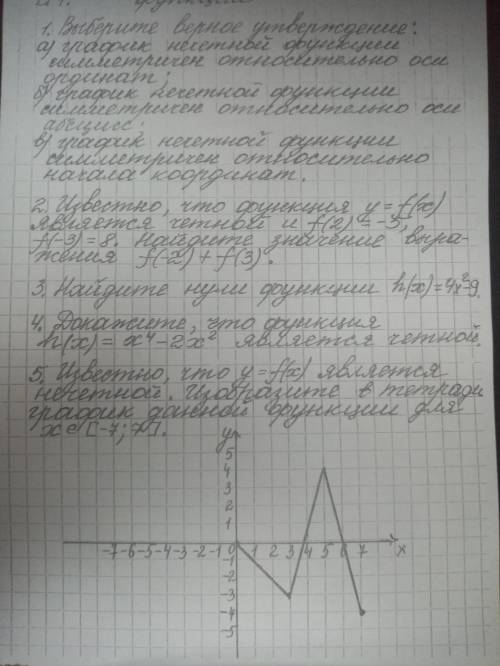 функции
1. Выберите верное утверждение:
а) график нечетной функции
симметричен относительно оси
ординат;
б) график нечетной функции
симметричен относительно оси
абсцисс;
в) график нечетной функции
симметричен относительно
начала координат.
2. Известно, что функция y = f(x)
является четной и f(2) = -5,
f(-3) = 8. Найдите значение выра-
жения f(-2) + f(3).
3. Найдите нули функции h(x)=4x²-9.
4. Докажите, что функция
h(x) = x⁴ - 2x² является четной.
5. Известно, что y = f(x) является
нечетной. Изобразите в тетради
график данной функции для
x ∈ [-7; 7].
y
5
4
3
2
1
-7 -6 -5 -4 -3 -2 -1 0 1 2 3 4 5 6 7 x
-1
-2
-3
-4
-5